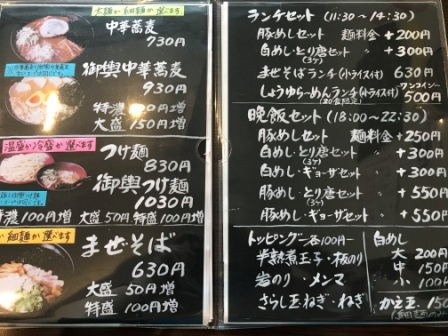 太麺か細麺か選べます
中華蕎麦
730円
御輿中華蕎麦
930円
特濃 100円増
大盛 150円増
温盛か冷盛か選べます
つけ麺
830円
御輿つけ麺
1030円
特濃100円増 大盛50円 特盛100円増
まぜそば
630円
大盛 50円増
特盛 100円増
ランチセット (11:30~14:30)
豚めしセット 麺料金+200円
白めし・とり唐セット 〃 +300円
(3ケ)
まぜそばランチ(小ライス付) 630円
しょうゆらーめんランチ(小ライス付) ワンコイン
500円
晩飯セット (18:00~22:30)
豚めしセット 麺料金+250円
白めし・とり唐セット 〃 +300円
(3ケ)
白めし・ギョーザセット 〃 +300円
豚めし・とり唐セット 〃 +550円
(3ケ)
豚めし・ギョーザセット 〃 +550円
トッピング 各100円
半熟煮玉子・板のり
岩のり・メンマ
さらし玉ねぎ・ねぎ
白めし
大 200円
中 150
小 100
かえ玉 15